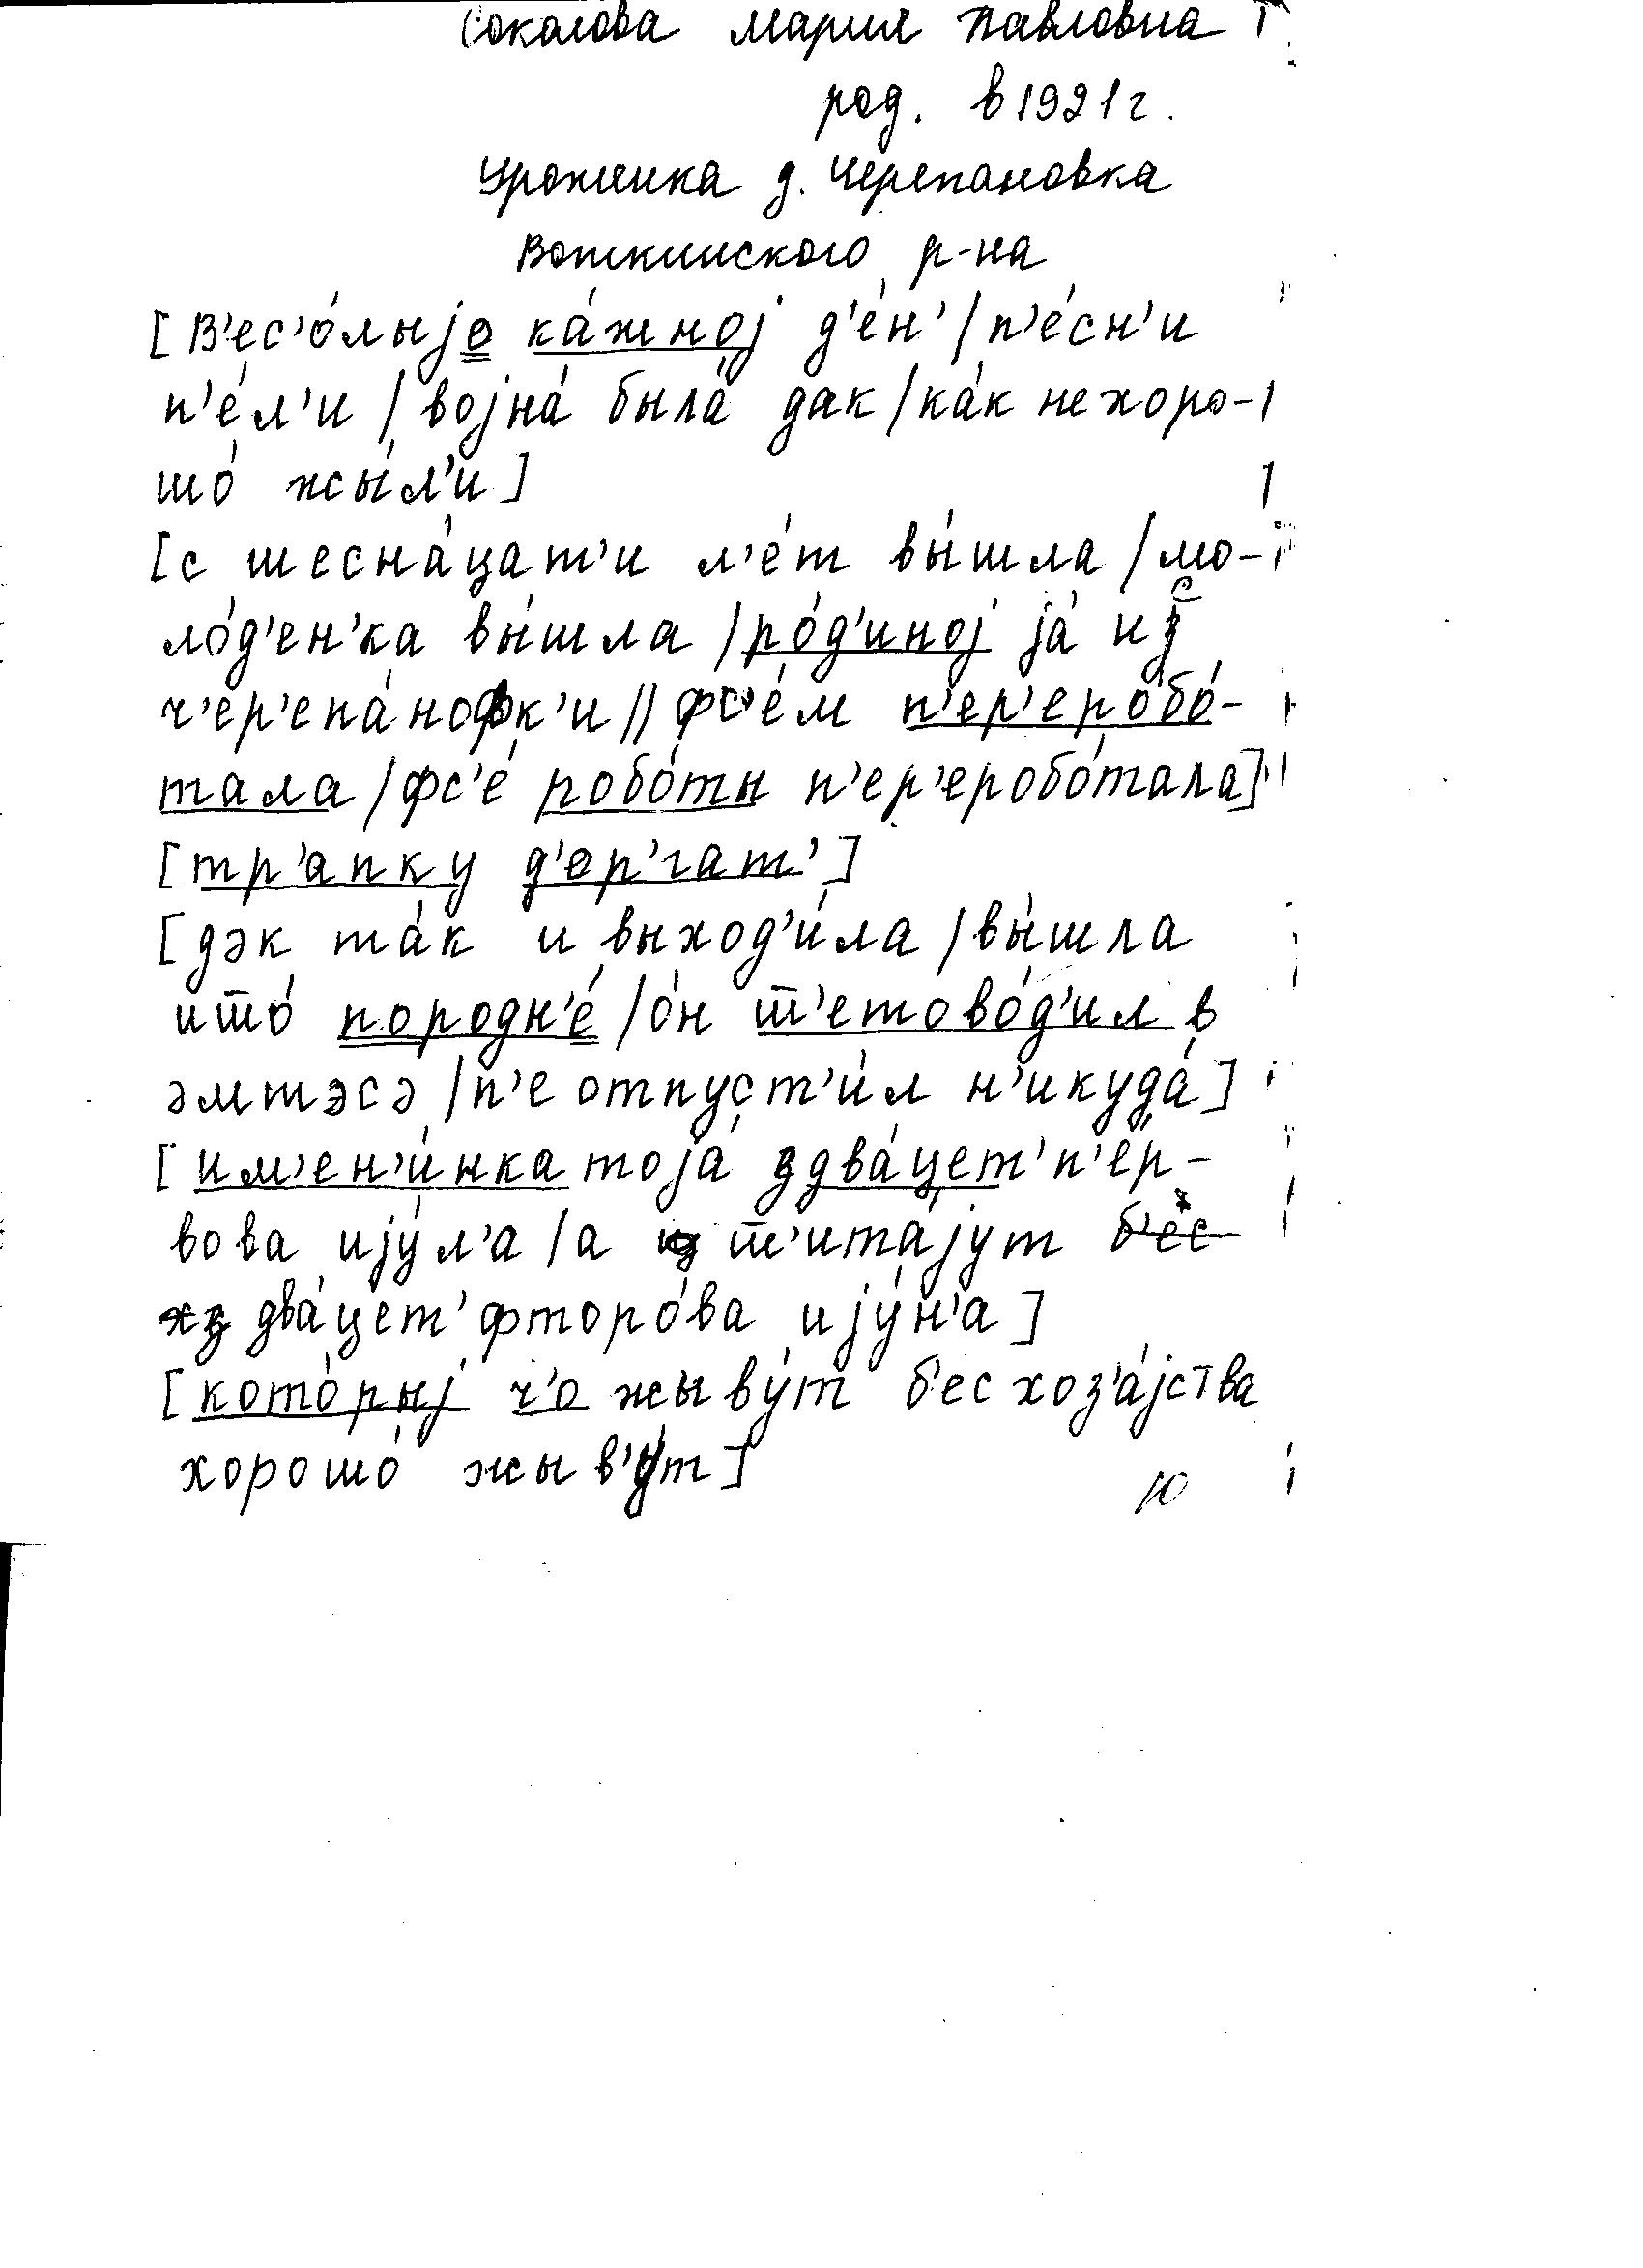 Соколова Мария Павловна
род. в 1921 г.
Уроженка д. Черепановка
Воткинского р-на
[В'ес'о́лыjо ка́жноj д'е́н' / п'е́сн'и
п'е́л'и / воjна́ была́ дак / ка́к нехоро-
шо́ жы́л'и]
[с шесна́цат'и л'е́т вы́шла / мо-
ло́д'ен'ка вы́шла / ро́д'иноj jа́ ис
ч'ер'епа́нофк'и // фс'е́м п'ер'еробо́-
тала / фс'е́ робо́ты п'ер'еробо́тала]
[тр'апку д'ор'гат']
[дэк та́к и выход'и́ла / вы́шла
ишо́ породн'е́ / о́н ш'етово́д'ил в
эмтэсэ / н'е отпуст'и́л н'икуда́]
[им'ен'и́нка тоjа́ здва́цет' п'е́р-
вова иjу́л'а / а ш'ита́jут
два́цет' фторо́ва иjу́н'а]
[кото́рыj ч'о жыву́т б'ес хоз'а́jства
хорошо́ жыв'у́т]
10